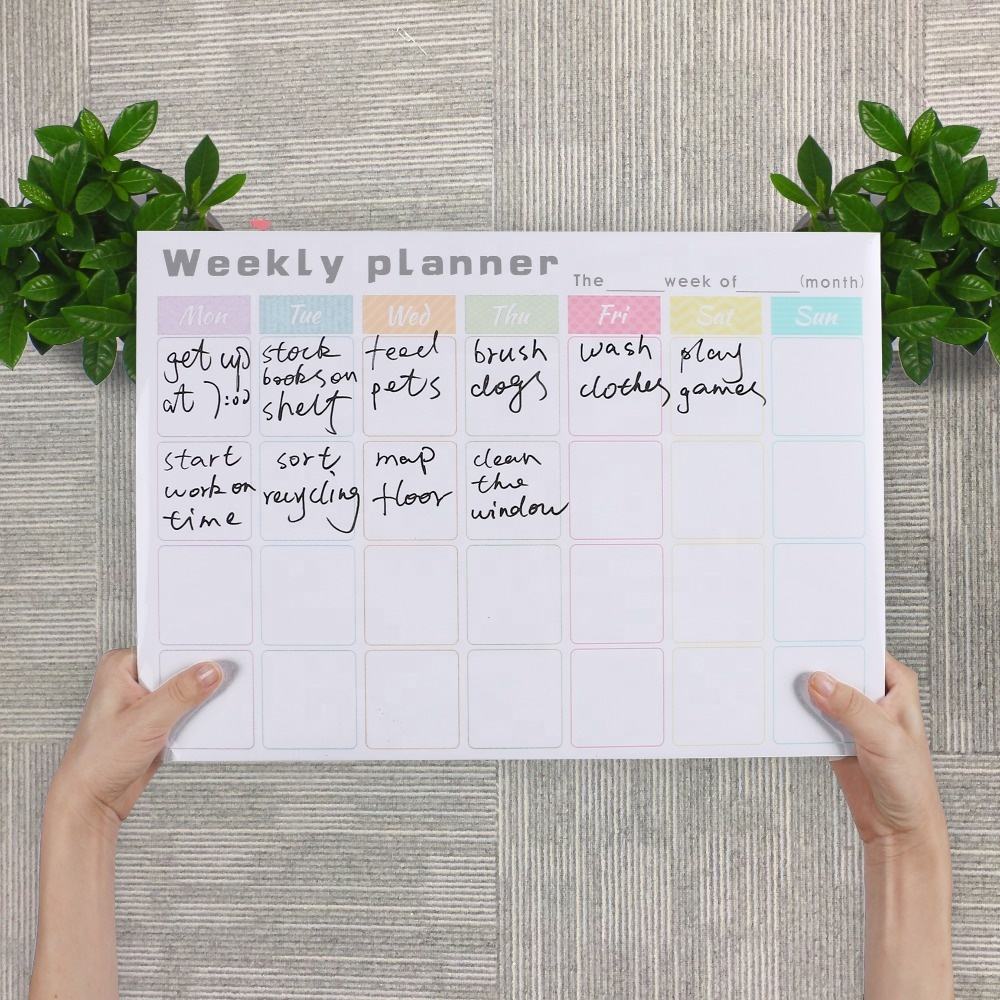 Weekly planner
The______week of______(month)
Mon Tue Wed Thu Fri Sat Sun
get up
at 7:00
stock
books on
shelf
feed
pets
brush
dogs
wash
clothes
play
games
start
work on
time
sort
recycling
mop
floor
clean
the
window